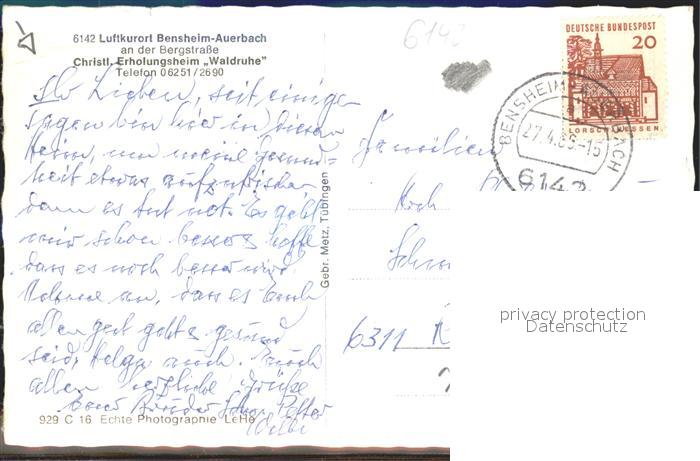 6142 Luftkurort Bensheim-Auerbach
an der Bergstraße
Christl. Erholungsheim „Waldruhe"
Telefon 06251/2690
6142
DEUTSCHE BUNDESPOST
20
LORSCH/HESSEN
BENSHEIM-AUERBACH
27.4.86-15
6142
Lieben, seit einigen
Tagen bin hier in diesem
Heim, um meine Gesund-
heit etwas aufzufrischen
denn es tut not. Es geht
mir schon besser hoffe
dass es noch besser wird
Nehme an, dass es Euch
allen gut geht & gesund
seid, Helga auch. Euch
allen herzliche Grüße
Euer Bruder
Familien
6311
Gebr. Metz, Tübingen
929 C 16 Echte Photographie LeHe
privacy protection
Datenschutz